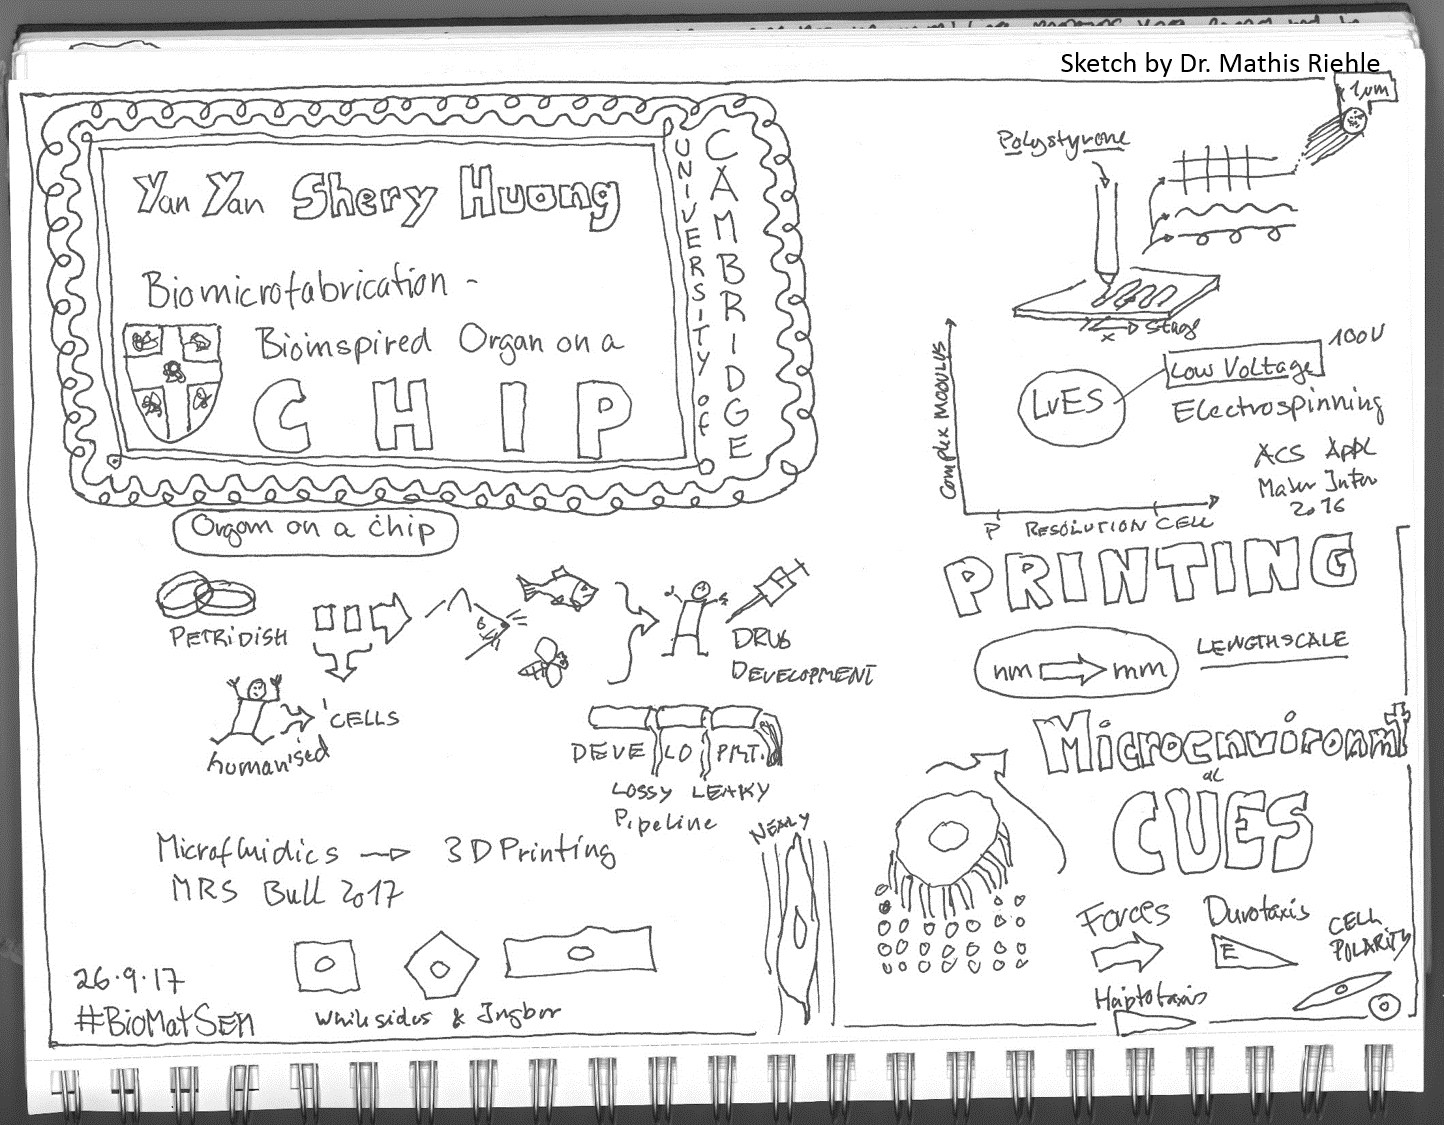 Sketch by Dr. Mathis Riehle
1µm
Yan Yan Shery Huang
UNIVERSITY of
CAMBRIDGE
Biomicrofabrication -
Bioinspired Organ on a
CHIP
Polystyrene
x Stage
Complex MODULUS
P RESOLUTION CELL
LVES
Low Voltage
100V
Electrospinning
ACS Appl
Mater Inter
2016
Organ on a chip
PETRIDISH
CELLS
humanised
DRUG
DEVELOPMENT
DEVE LO PMT.
LOSSY LEAKY
Pipeline
PRINTING
nm mm
LENGTHSCALE
Microenvironmt
al
CUES
Forces
Durotaxis
E
CELL
POLARITY
Haptotaxis
Microfluidics → 3D Printing
MRS Bull 2017
NEALY
Whitesides & Ingber
26.9.17
#BioMatSEM